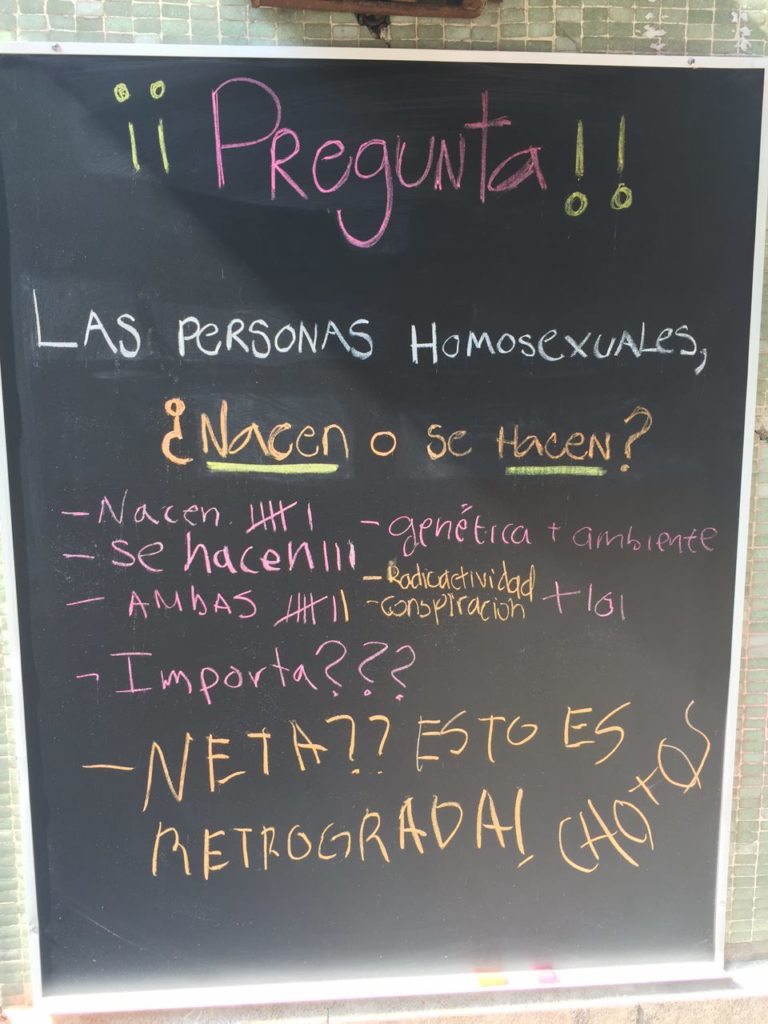 ¡¡Pregunta!!
LAS PERSONAS HOMOSEXUALES,
¿Nacen o se Hacen?
- Nacen
- se hacen III
- AMBAS
- genética + ambiente
- Radioactividad
- conspiración
- Importa???
- NETA?? ESTO ES
RETROGRADA!